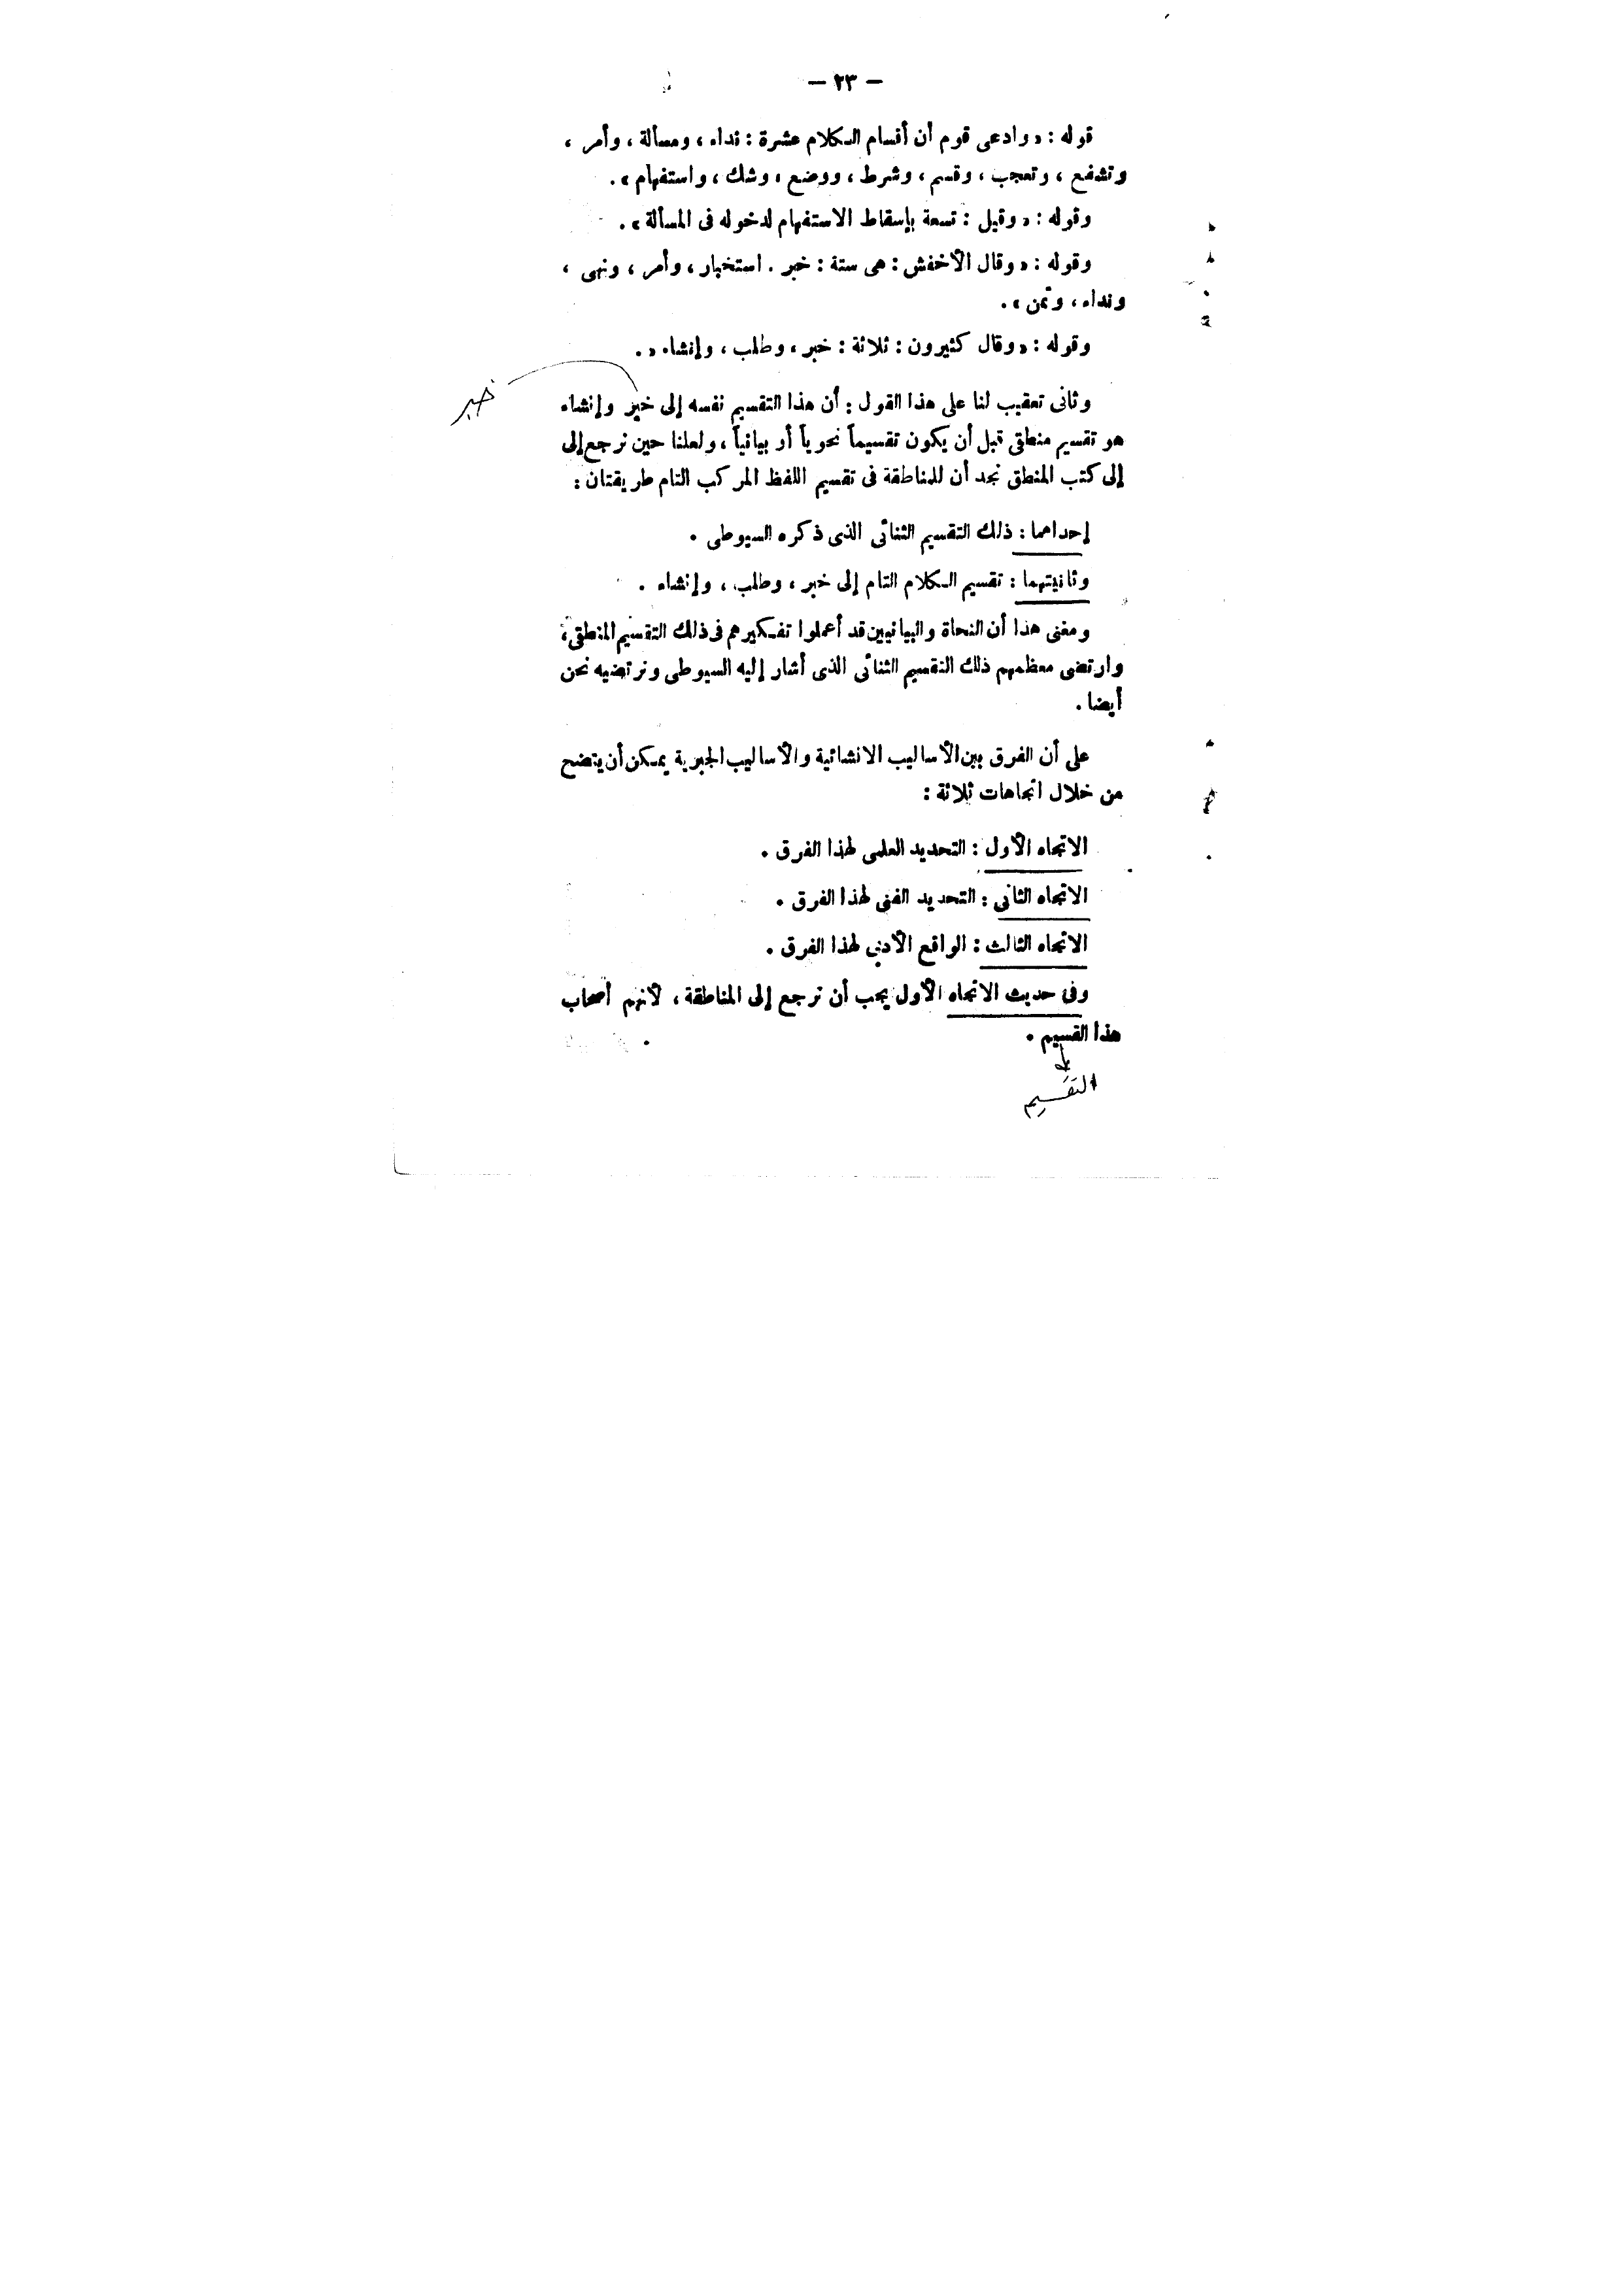 — ٢٣ —
قوله : « وادعى قوم أن أقسام الكلام عشرة : نداء ، ومسألة ، وأمر ،
وتشفع ، وتعجب ، وقسم ، وشرط ، ووضع ، وشك ، واستفهام » .
وقوله : « وقيل : تسعة بإسقاط الاستفهام لدخوله فى المسألة » .
وقوله : « وقال الأخفش : هى ستة : خبر . استخبار ، وأمر ، ونهى ،
ونداء ، وتمن » .
وقوله : « وقال كثيرون : ثلاثة : خبر ، وطلب ، وإنشاء « .
وثانى تعقيب لنا على هذا القول : أن هذا التقسيم نفسه إلى خبر وإنشاء
خبر
هو تقسيم منطقى قبل أن يكون تقسيماً نحوياً أو بيانياً ، ولعلنا حين نرجع إلى
إلى كتب المنطق نجد أن للمناطقة فى تقسيم اللفظ المركب التام طريقتان :
إحداهما : ذلك التقسيم الثنائى الذى ذكره السيوطى .
وثانيتهما : تقسيم الكلام التام إلى خبر ، وطلب ، وإنشاء .
ومعنى هذا أن النحاة والبيانيين قد أعملوا تفكيرهم فى ذلك التقسيم المنطقى ،
وارتضى معظمهم ذلك التقسيم الثنائى الذى أشار إليه السيوطى ونرتضيه نحن
أيضا .
على أن الفرق بين الأساليب الانشائية والأساليب الخبرية يمكن أن يتضح
من خلال اتجاهات ثلاثة :
الاتجاه الأول : التحديد العلمى لهذا الفرق .
الاتجاه الثانى : التحديد الفنى لهذا الفرق .
الاتجاه الثالث : الواقع الأدبى لهذا الفرق .
وفى حديث الاتجاه الأول يجب أن نرجع إلى المناطقة ، لأنهم أصحاب
هذا القسيم .
التقسيم